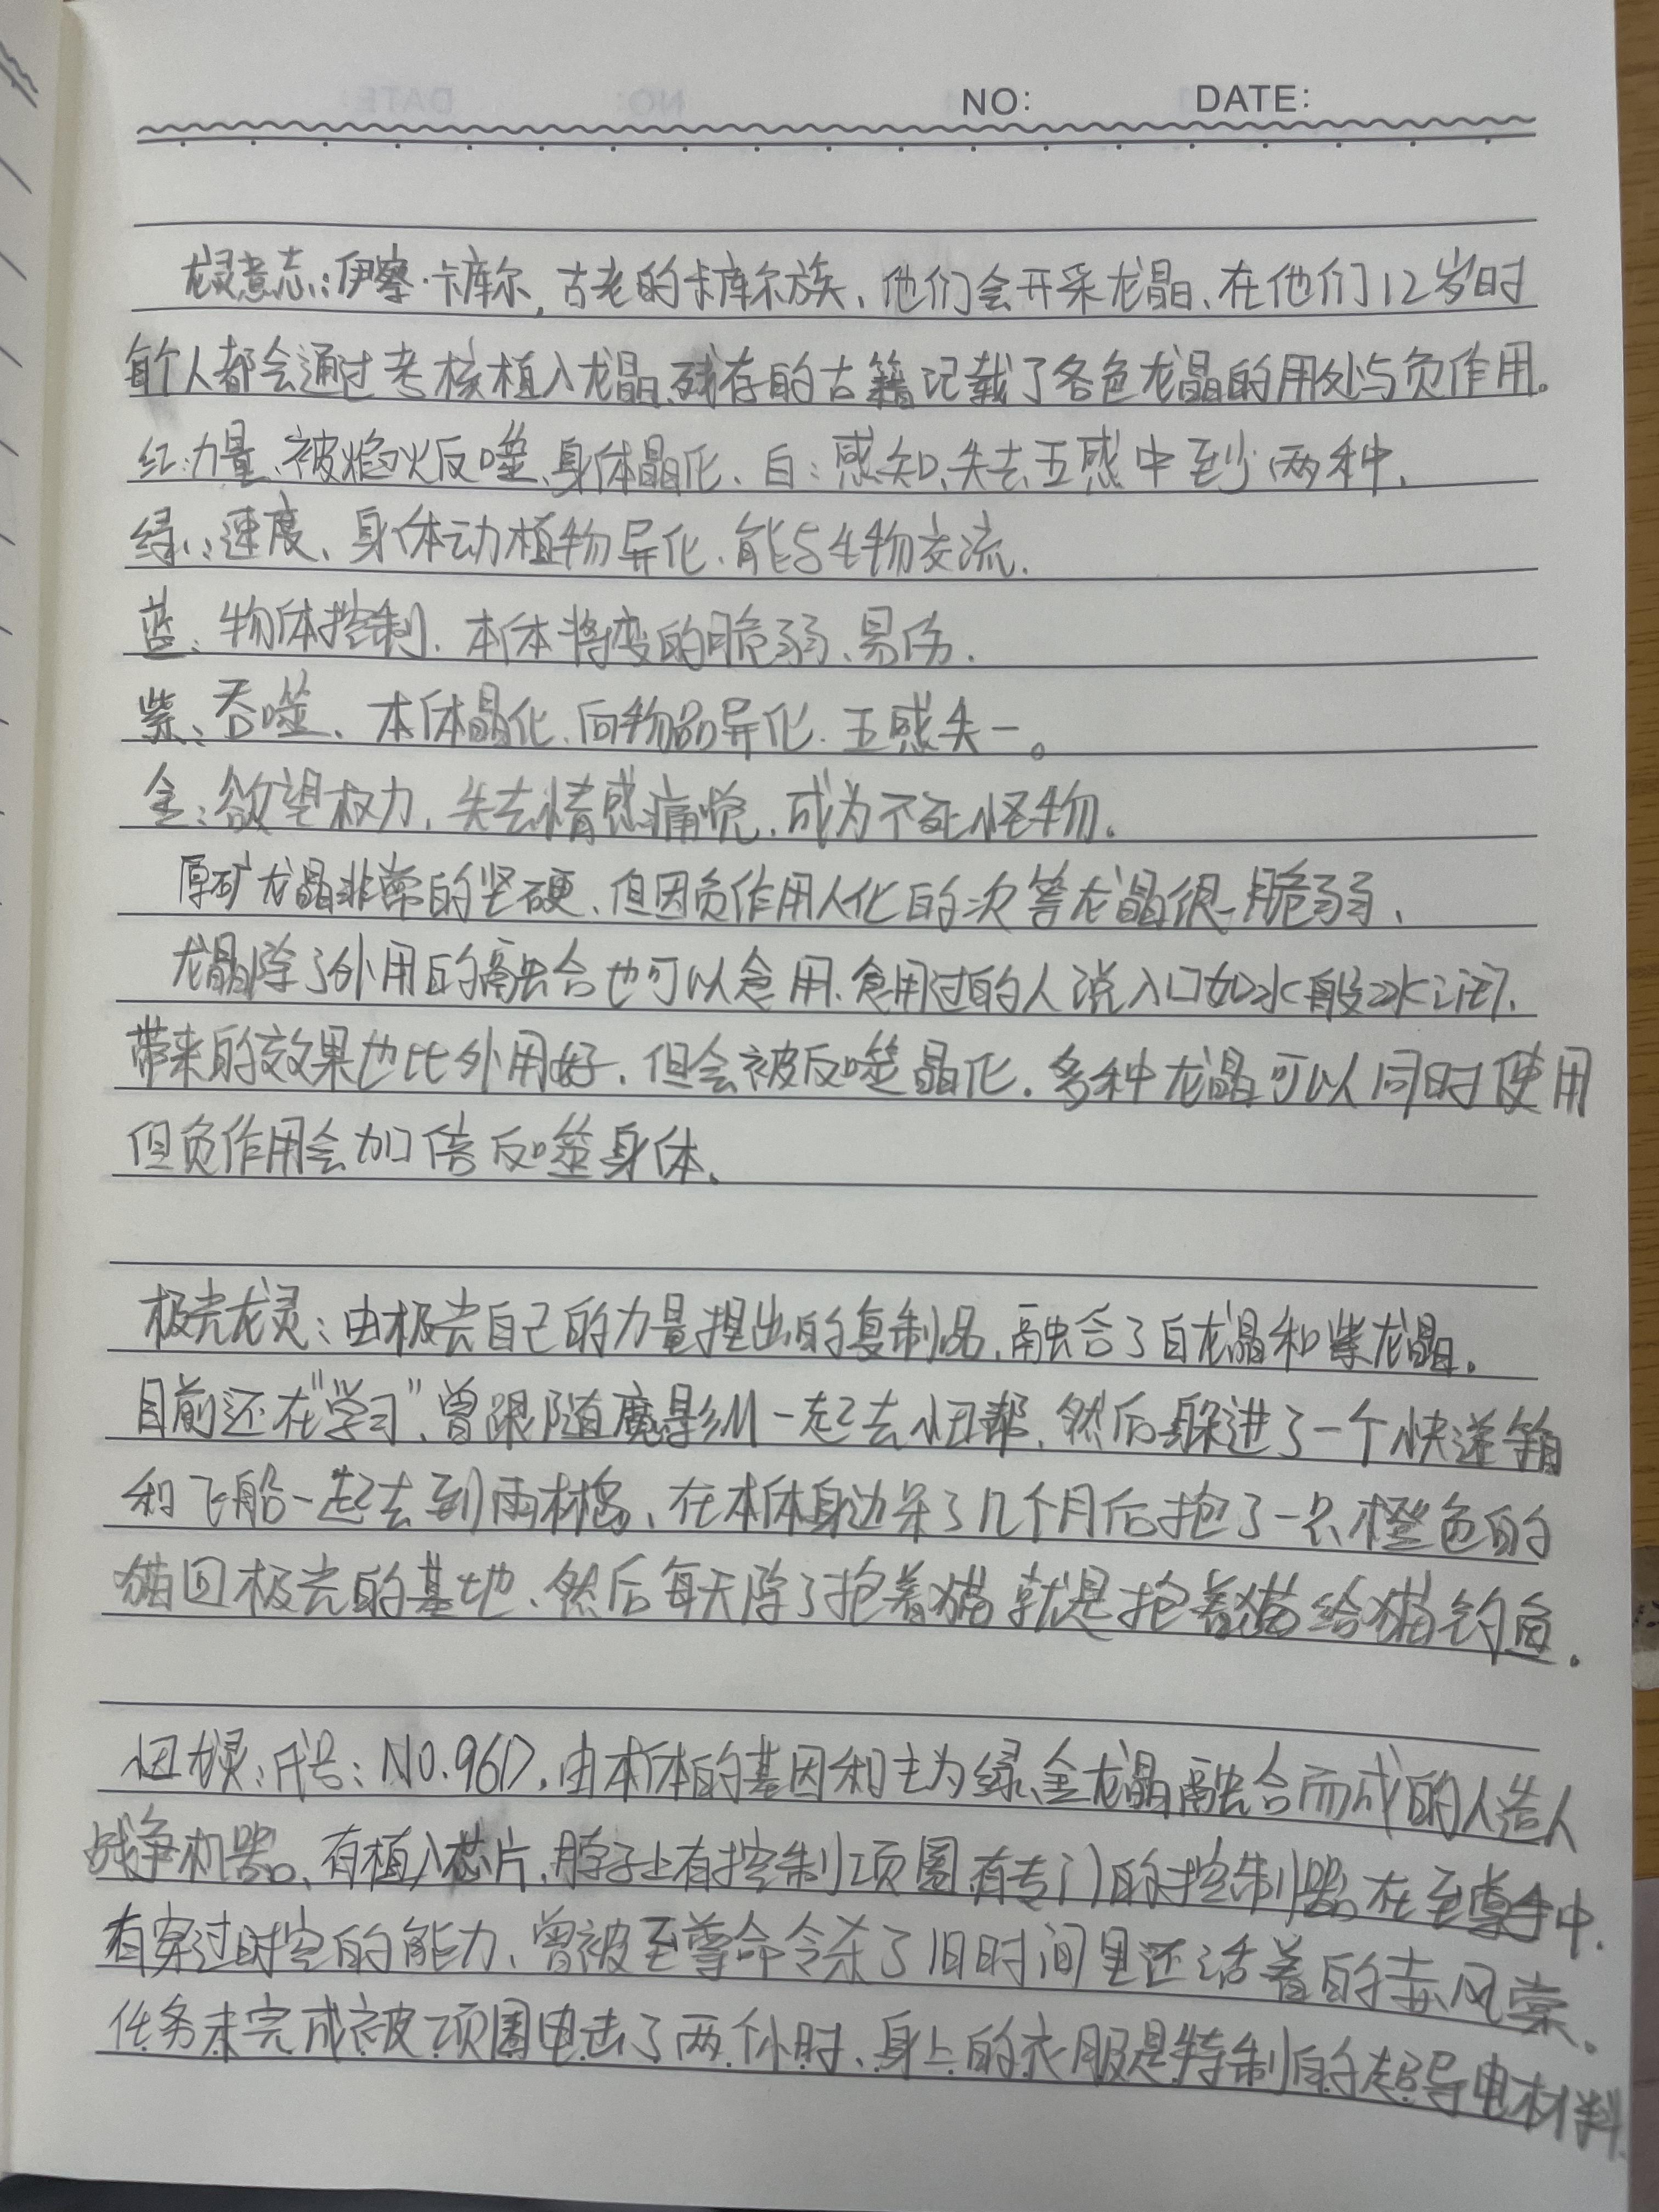 NO: DATE:
龙灵意志:伊察·卡库尔,古老的卡库尔族、他们会开采龙晶、在他们12岁时
每个人都会通过考核植入龙晶、残存的古籍记载了各色龙晶的用处与负作用。
红:力量、被焰火反噬、身体晶化、白:感知、失去五感中至少两种、
绿:速度、身体动植物异化、能与生物交流.
蓝:物体控制、本体将变的脆弱、易伤.
紫:吞噬、本体晶化、向物品异化、五感失一。
金:欲望权力,失去情感痛觉,成为不死怪物。
原矿龙晶非常的坚硬、但因负作用人化的次等龙晶很脆弱、
龙晶除了外用的融合也可以食用、食用过的人说入口如冰般冰凉、
带来的效果也比外用好、但会被反噬晶化、多种龙晶可以同时使用
但负作用会加倍反噬身体、
极光龙灵:由极光自己的力量捏出的复制品,融合了白龙晶和紫龙晶。
目前还在"学习"、曾跟随魔影纵一起去忸帮、然后躲进了一个快递箱
和飞船一起去到雨林岛、在本体身边呆了几个月后抱了一只橙色的
猫回极光的基地、然后每天除了抱着猫就是抱着猫给猫钓鱼。
忸龙灵:代号:NO.961),由本体的基因和主为绿、金龙晶融合而成的人造人
战争机器、有植入芯片,脖子上有控制项圈有专门的控制器在至尊手中.
有穿过时空的能力、曾被至尊命令杀了旧时间里还活着的赤风棠。
任务未完成被项圈电击了两个小时、身上的衣服是特制的超导电材料.